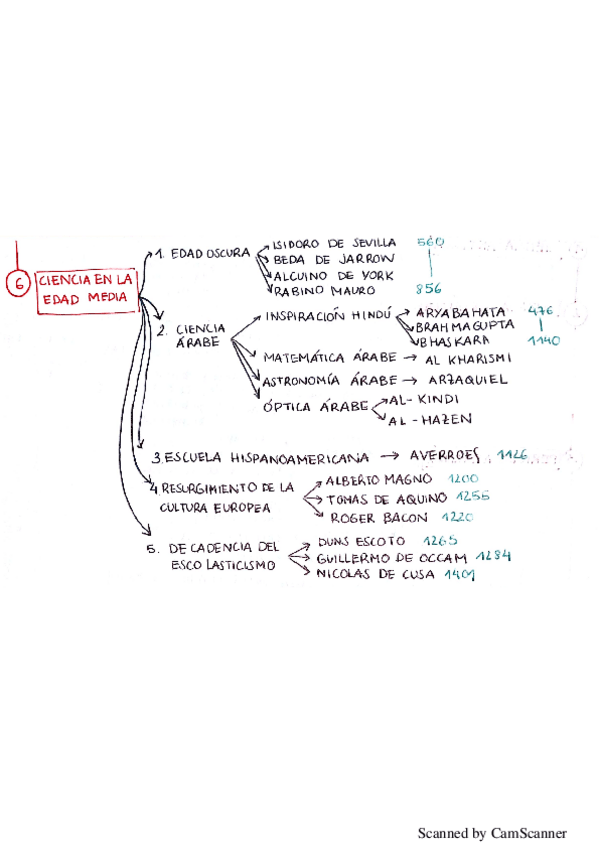 6
CIENCIA EN LA
EDAD MEDIA
1. EDAD OSCURA
ISIDORO DE SEVILLA 560
BEDA DE JARROW
ALCUINO DE YORK
RABINO MAURO 856
2. CIENCIA
ÁRABE
INSPIRACIÓN HINDÚ
ARYABAHATA 476
BRAHMAGUPTA
BHASKARA 1140
MATEMÁTICA ÁRABE → AL KHARISMI
ASTRONOMÍA ÁRABE → ARZAQUIEL
ÓPTICA ÁRABE
AL-KINDI
AL-HAZEN
3. ESCUELA HISPANOAMERICANA → AVERROES 1126
4 RESURGIMIENTO DE LA
CULTURA EUROPEA
ALBERTO MAGNO 1200
TOMAS DE AQUINO
ROGER BACON 1220
5. DECADENCIA DEL
ESCOLASTICISMO
DUNS ESCOTO 1265
GUILLERMO DE OCCAM 1284
NICOLAS DE CUSA 1401
Scanned by CamScanner